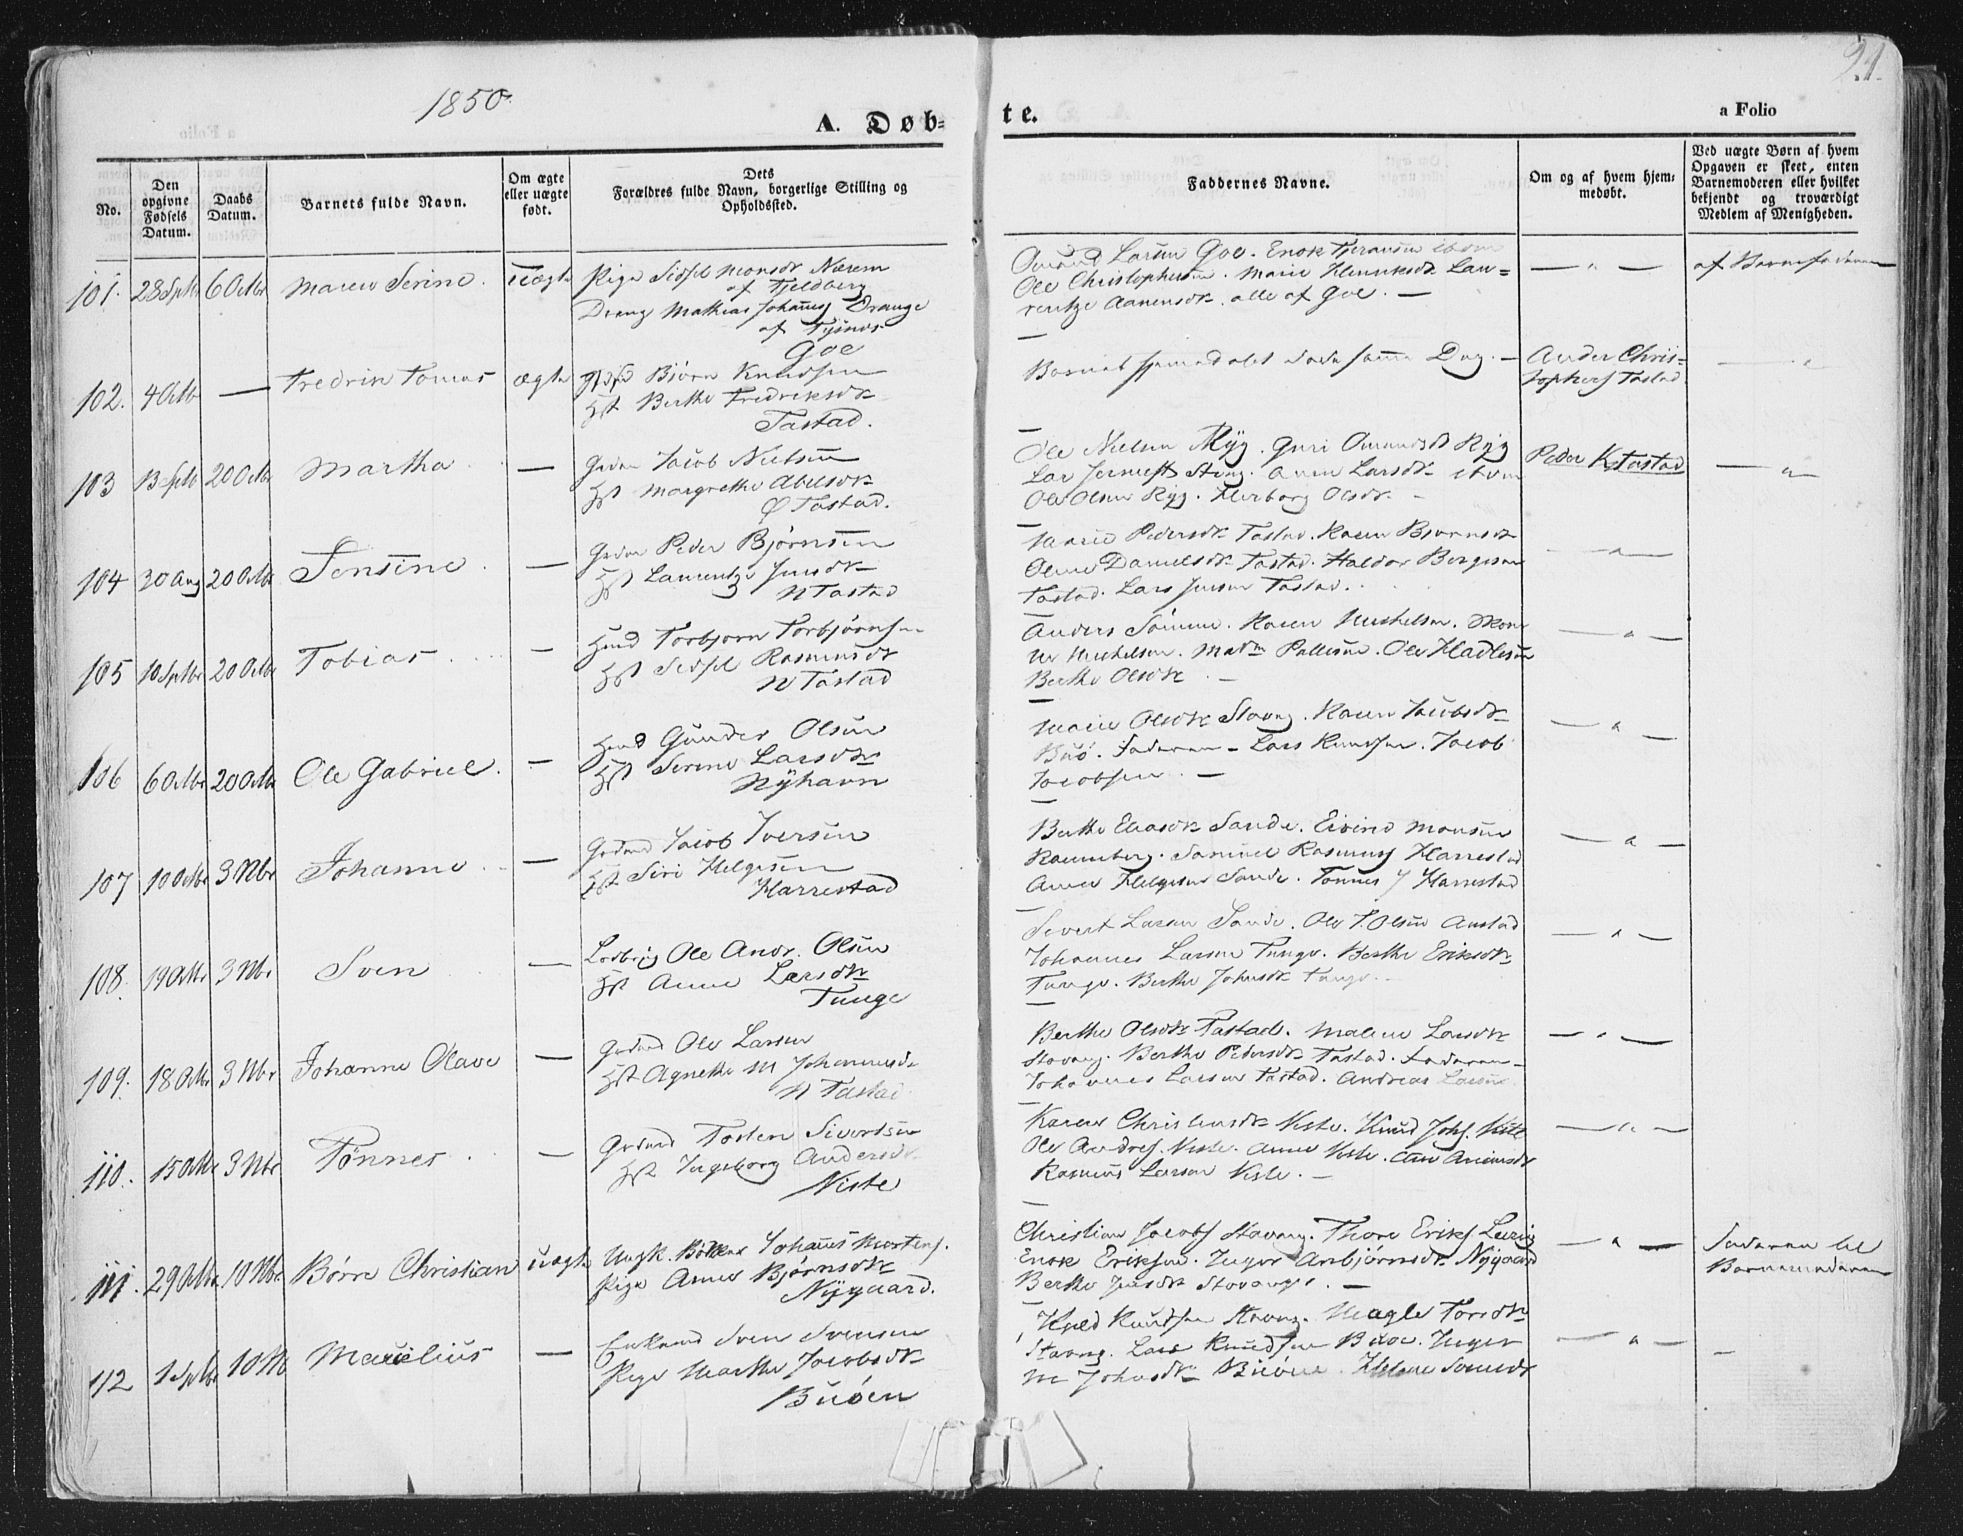 1850.
A. Døb-
te.
a Folio
91.
No.
Den opgivne Fødsels Datum.
Daabs Datum.
Barnets fulde Navn.
Om ægte eller uægte født.
Dets
Forældres fulde Navn, borgerlige Stilling og
Opholdssted.
Faddernes Navne.
Om og af hvem hjem-
medøbt.
Ved uægte Børn af hvem
Opgaven er skeet, enten
Barnemoderen eller hvilket
bekjendt og troværdigt
Medlem af Menigheden.
101. 28 Septbr 6 Octbr Maren Serine. uægte Pige Sidsel Monsdt Nærem
af Fjeldberg
Dreng Mathias Johannes Orange
af Tysnæs
Goe
Omund Larsen Goe. Enok
Ole Christophersen. Marie Henriksdt. Lau-
rentze Aanensdt. alle af Goe. —
— " —
af Barnefaderen
102. 4 Octb — Fredrik Tomas ægte Bjørn Knudsen
Hst Berthe Fredriksdt
Tastad.
Barnet døde samme Dag. —
Ander Chris-
tophers Tastad
— "
103 13 Septb 20 Octbr Martha — Jacob Nielsen
Hst Margrethe Abelsdt
Ø Tastad.
Ole Nielsen Ryg. Guri Omundsdt Ryg
Stavang. Anna Larsdt
Ole Olsen Ryg. Herborg Olsdt. —
Peder K Tastad
— "
104 30 Aug 20 Octbr Jensine — Peder Bjørnsen
Hst Laurentze Jensdt
N Tastad
Marie Pedersdt Tastad. Karen Bjørnsdt
Oline Danielsdt Tastad. Haldor Børgesen
Tastad. Lars Jensen Tastad.
— " —
105 10 Septbr 20 Octbr Tobias — Hmd Torbjørn Torbjørnsen
Hst Sidsel Rasmusdt
N Tastad
Anders Sømme. Karen Mickelsen.
Mickelsen. Madm Pallesen. Ole Hadlesen
Berthe Olsdt. —
— " —
106 6 Octbr 20 Octbr Ole Gabriel. — Hmd Gunder Olsen
Hst Serine Larsdt
Nyhavn
Marie Olsdt Stavang. Karen Jacobsdt
Buø. Faderen — Lars Knudsen. Jacob
Jacobsen. —
— " —
107 10 Octbr 3 Nbr Johanne — Gdmd Jacob Iversen
Hst Siri Helgesen
Harrestad
Berthe Eliasdt Sande. Eivind Monsen
Ranneberg. Samuel Rasmus Harrestad
Anna Helgesen Sande. Tønnes J Harrestad
— " —
108. 19 Octbr 3 Nbr Sven — Ole Andr. Olsen
Hst Anne Larsdt
Tunge
Sivert Larsen Sande. Ole T. Olsen Anstad
Johannes Larsen Tunge. Berthe Eriksdt
Tunge. Berthe Johnsdt Tunge. —
— " —
109. 18 Octbr 3 Nbr Johanne Olave — Gdmd Ole Larsen
Hst Agnethe M Johannesdt
N Tastad
Berthe Olsdt Tastad. Malene Larsdt
Stavang. Berthe Pedersdt Tastad. Faderen —
Johannes Larsen Tastad. Andreas Larsen
— " —
110. 15 Octbr 3 Nbr Tønnes — Gdmd Tosten Sivertsen
Hst Ingeborg Andersdt
Viste
Karen Christensdt Viste. Knud Johs. Viste
Ole Andres. Viste. Anne Viste.
Rasmus Larsen Viste. —
— " —
111. 29 Octbr 10 Nbr Børre Christian uægte Ungk. Johannes Mortens.
Pige Anne Bjørnsdt
Nygaard.
Christian Jacobs Stavang. Thore Eriks
Enok Eriksen. Inger Asbjørnsdt. Nygaard
Berthe Jensdt Stavanger. —
— " —
Faderen til
Barnemoderen
112 1 Septbr 10 Nb Maurelius — Enkmd Sven Svensen
Pige Marthe Jacobsdt
Buøen
Knudsen Stavang. Magle Torsdt
Stavang. Lars Knudsen Buøe. Inger
M Johnsdt Buøen. Helene
— " —
—